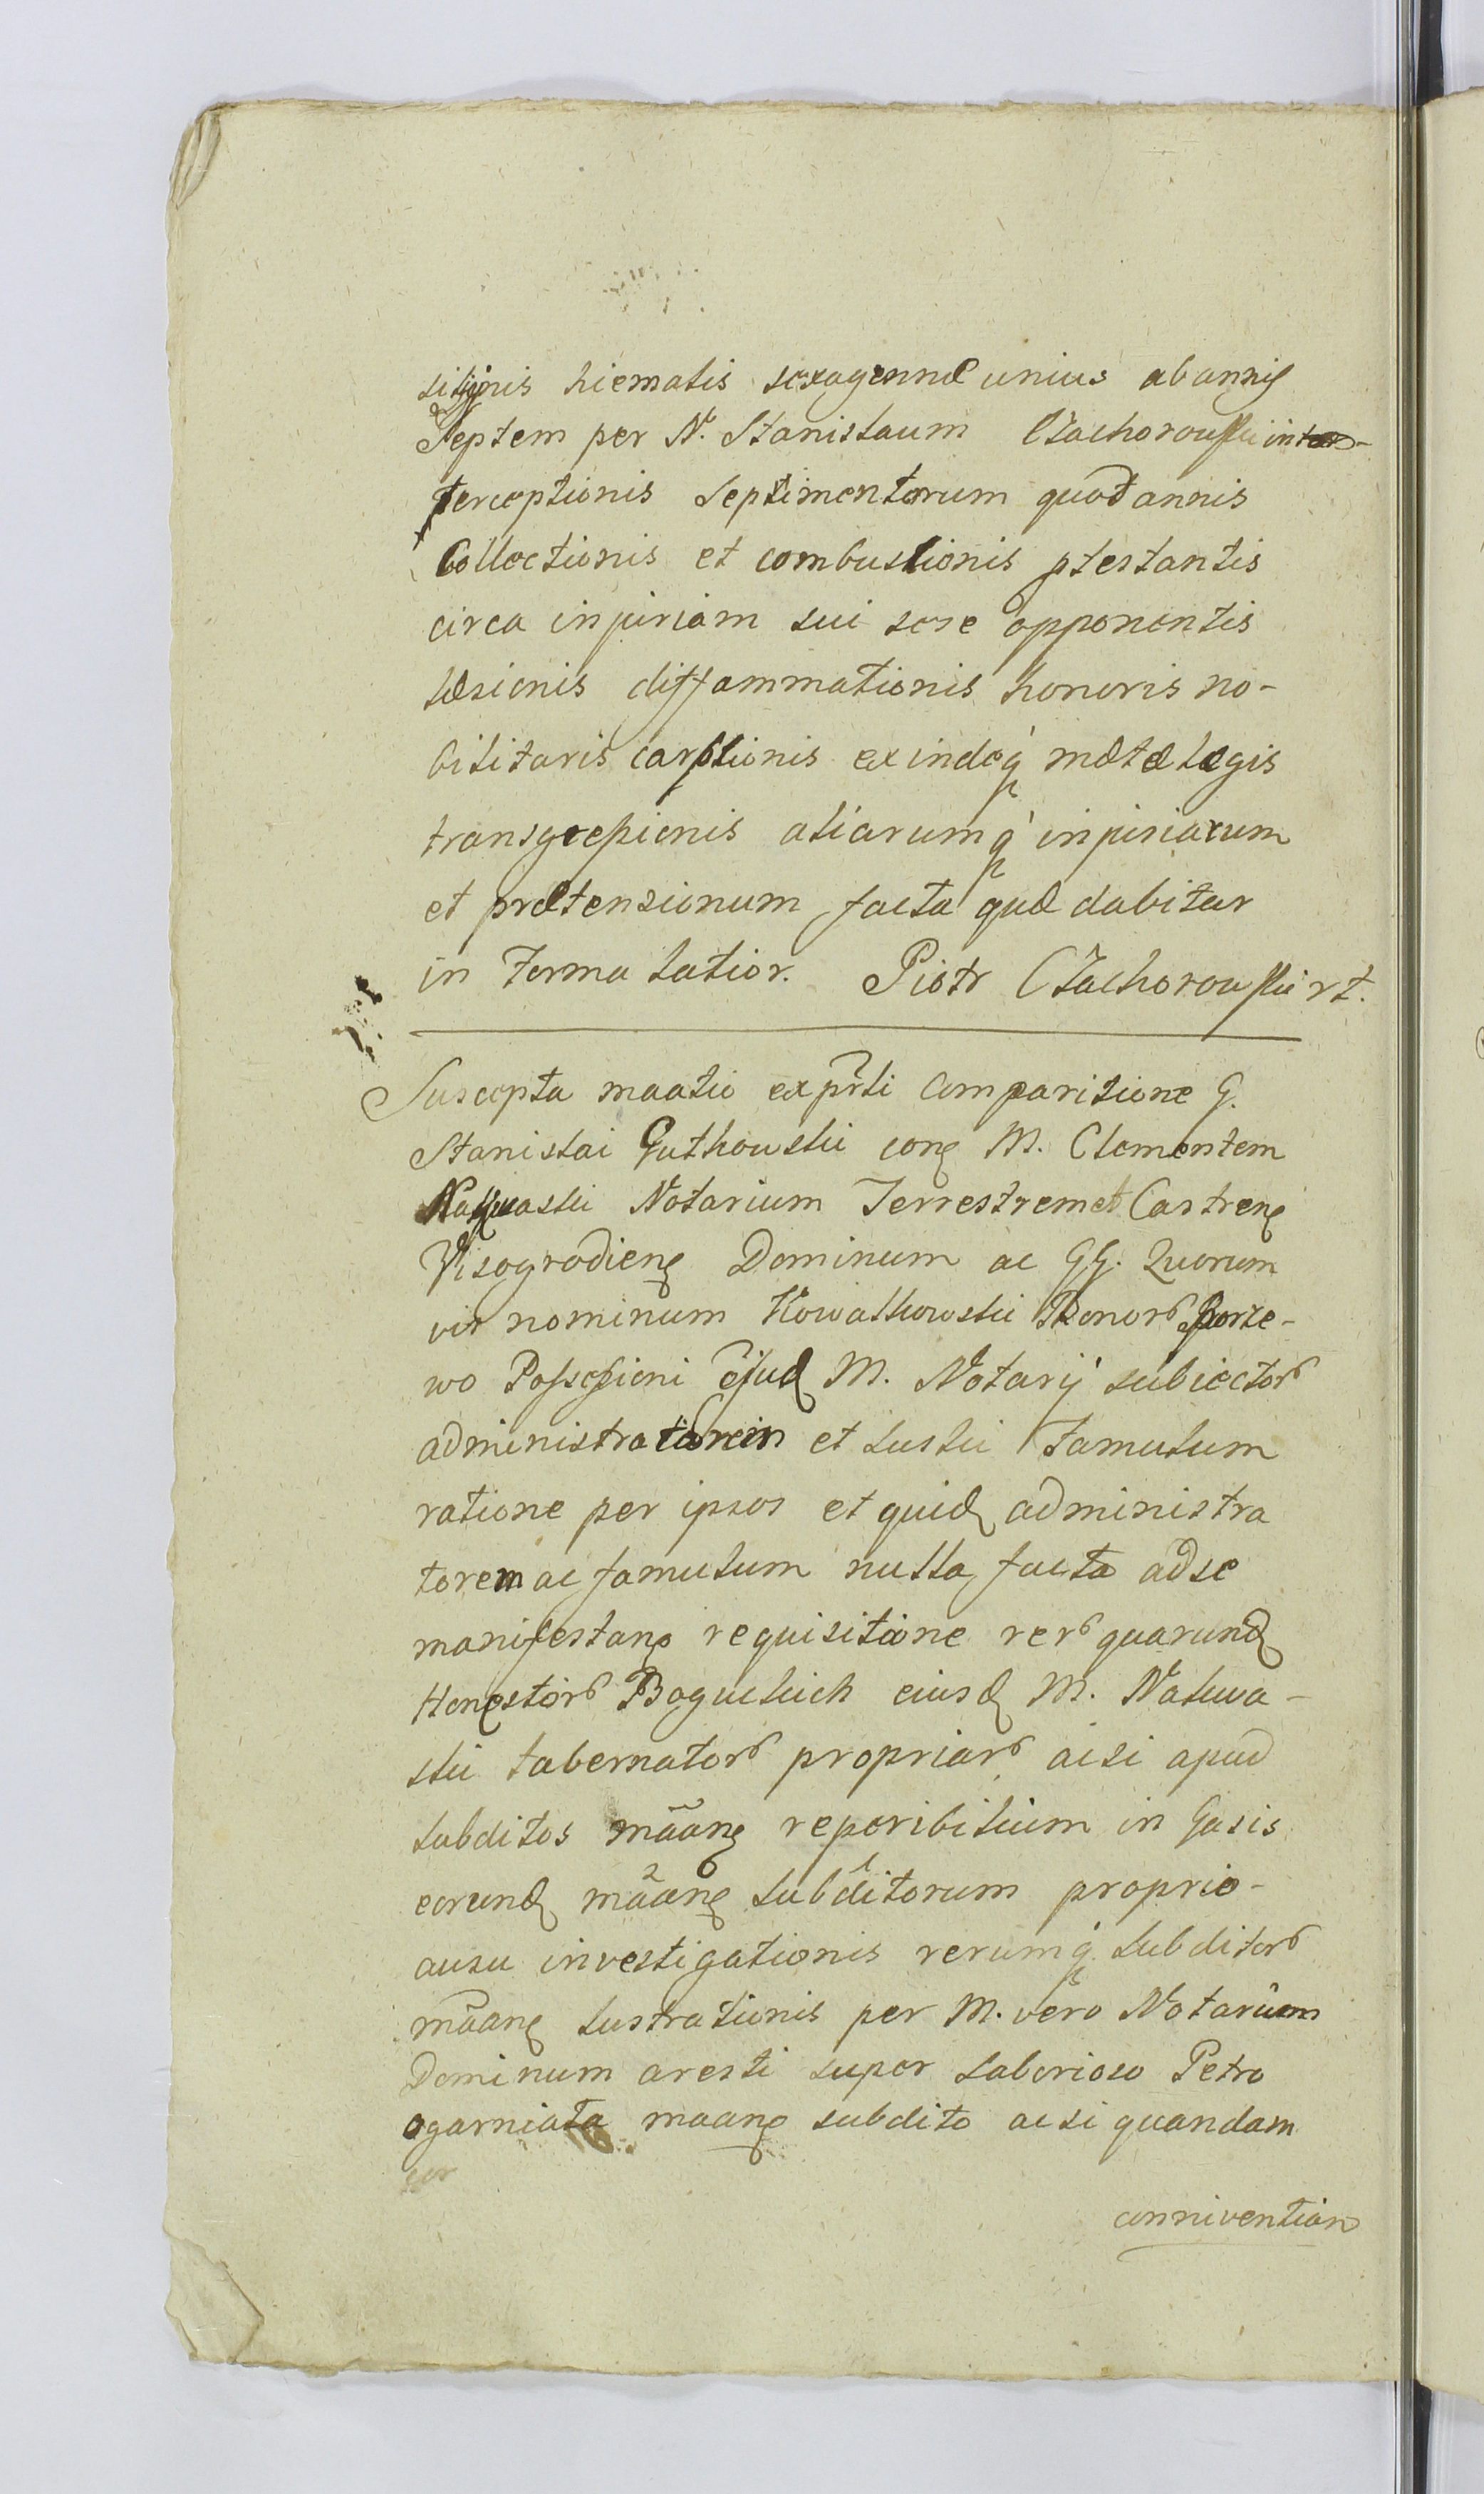 siliginis hiemalis sexagennæ unius ab annis
Septem per N. Stanislaum Czachorowski in
terceptionis Septimentorum quod annis
Collectionis et combustionis ptestantis
circa injuriam sui sese opponentis
læsionis diffammationis honoris no-
bilitaris carptionis exindeq́ metæ legis
transgressionis aliarumq́ injuriarum
et prætensionum facta quæ dabitur
in forma latior. Piotr Czachorowski rt.
Suscepta maatio ex prti Comparitione G.
Stanislai Gutkowski con M. Clementem
Nakwaski Notarium Terrestrem et Castren
Visogrodien Dominum ac GG. Quorum
vis nominum Kowalkowski Bonor
wo Possessioni ejusd M. Notarij subiector
administratorem et Luski famulum
ratione per ipsos et quid administra
torem ac famulum nulla facta ad se
manifestan requisitione rer quarund
Honestor Boguckich eiusd M. Nakwa-
ski tabernator propriar acsi apud
subditos mãan reperibilium in Casis
eorund mãan subditorum proprio-
ausu investigationis rerumq́ subditor
mãan lustrationis per M. vero Notarium
Dominum aresti super laborioso Petro
ogarniata maan subdito acsi quandam
conniventiam